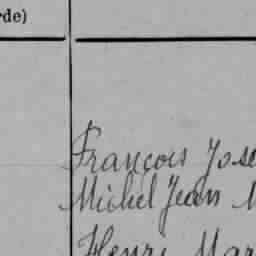 rde)
François Jose
Michel Jean M
Henri Mar